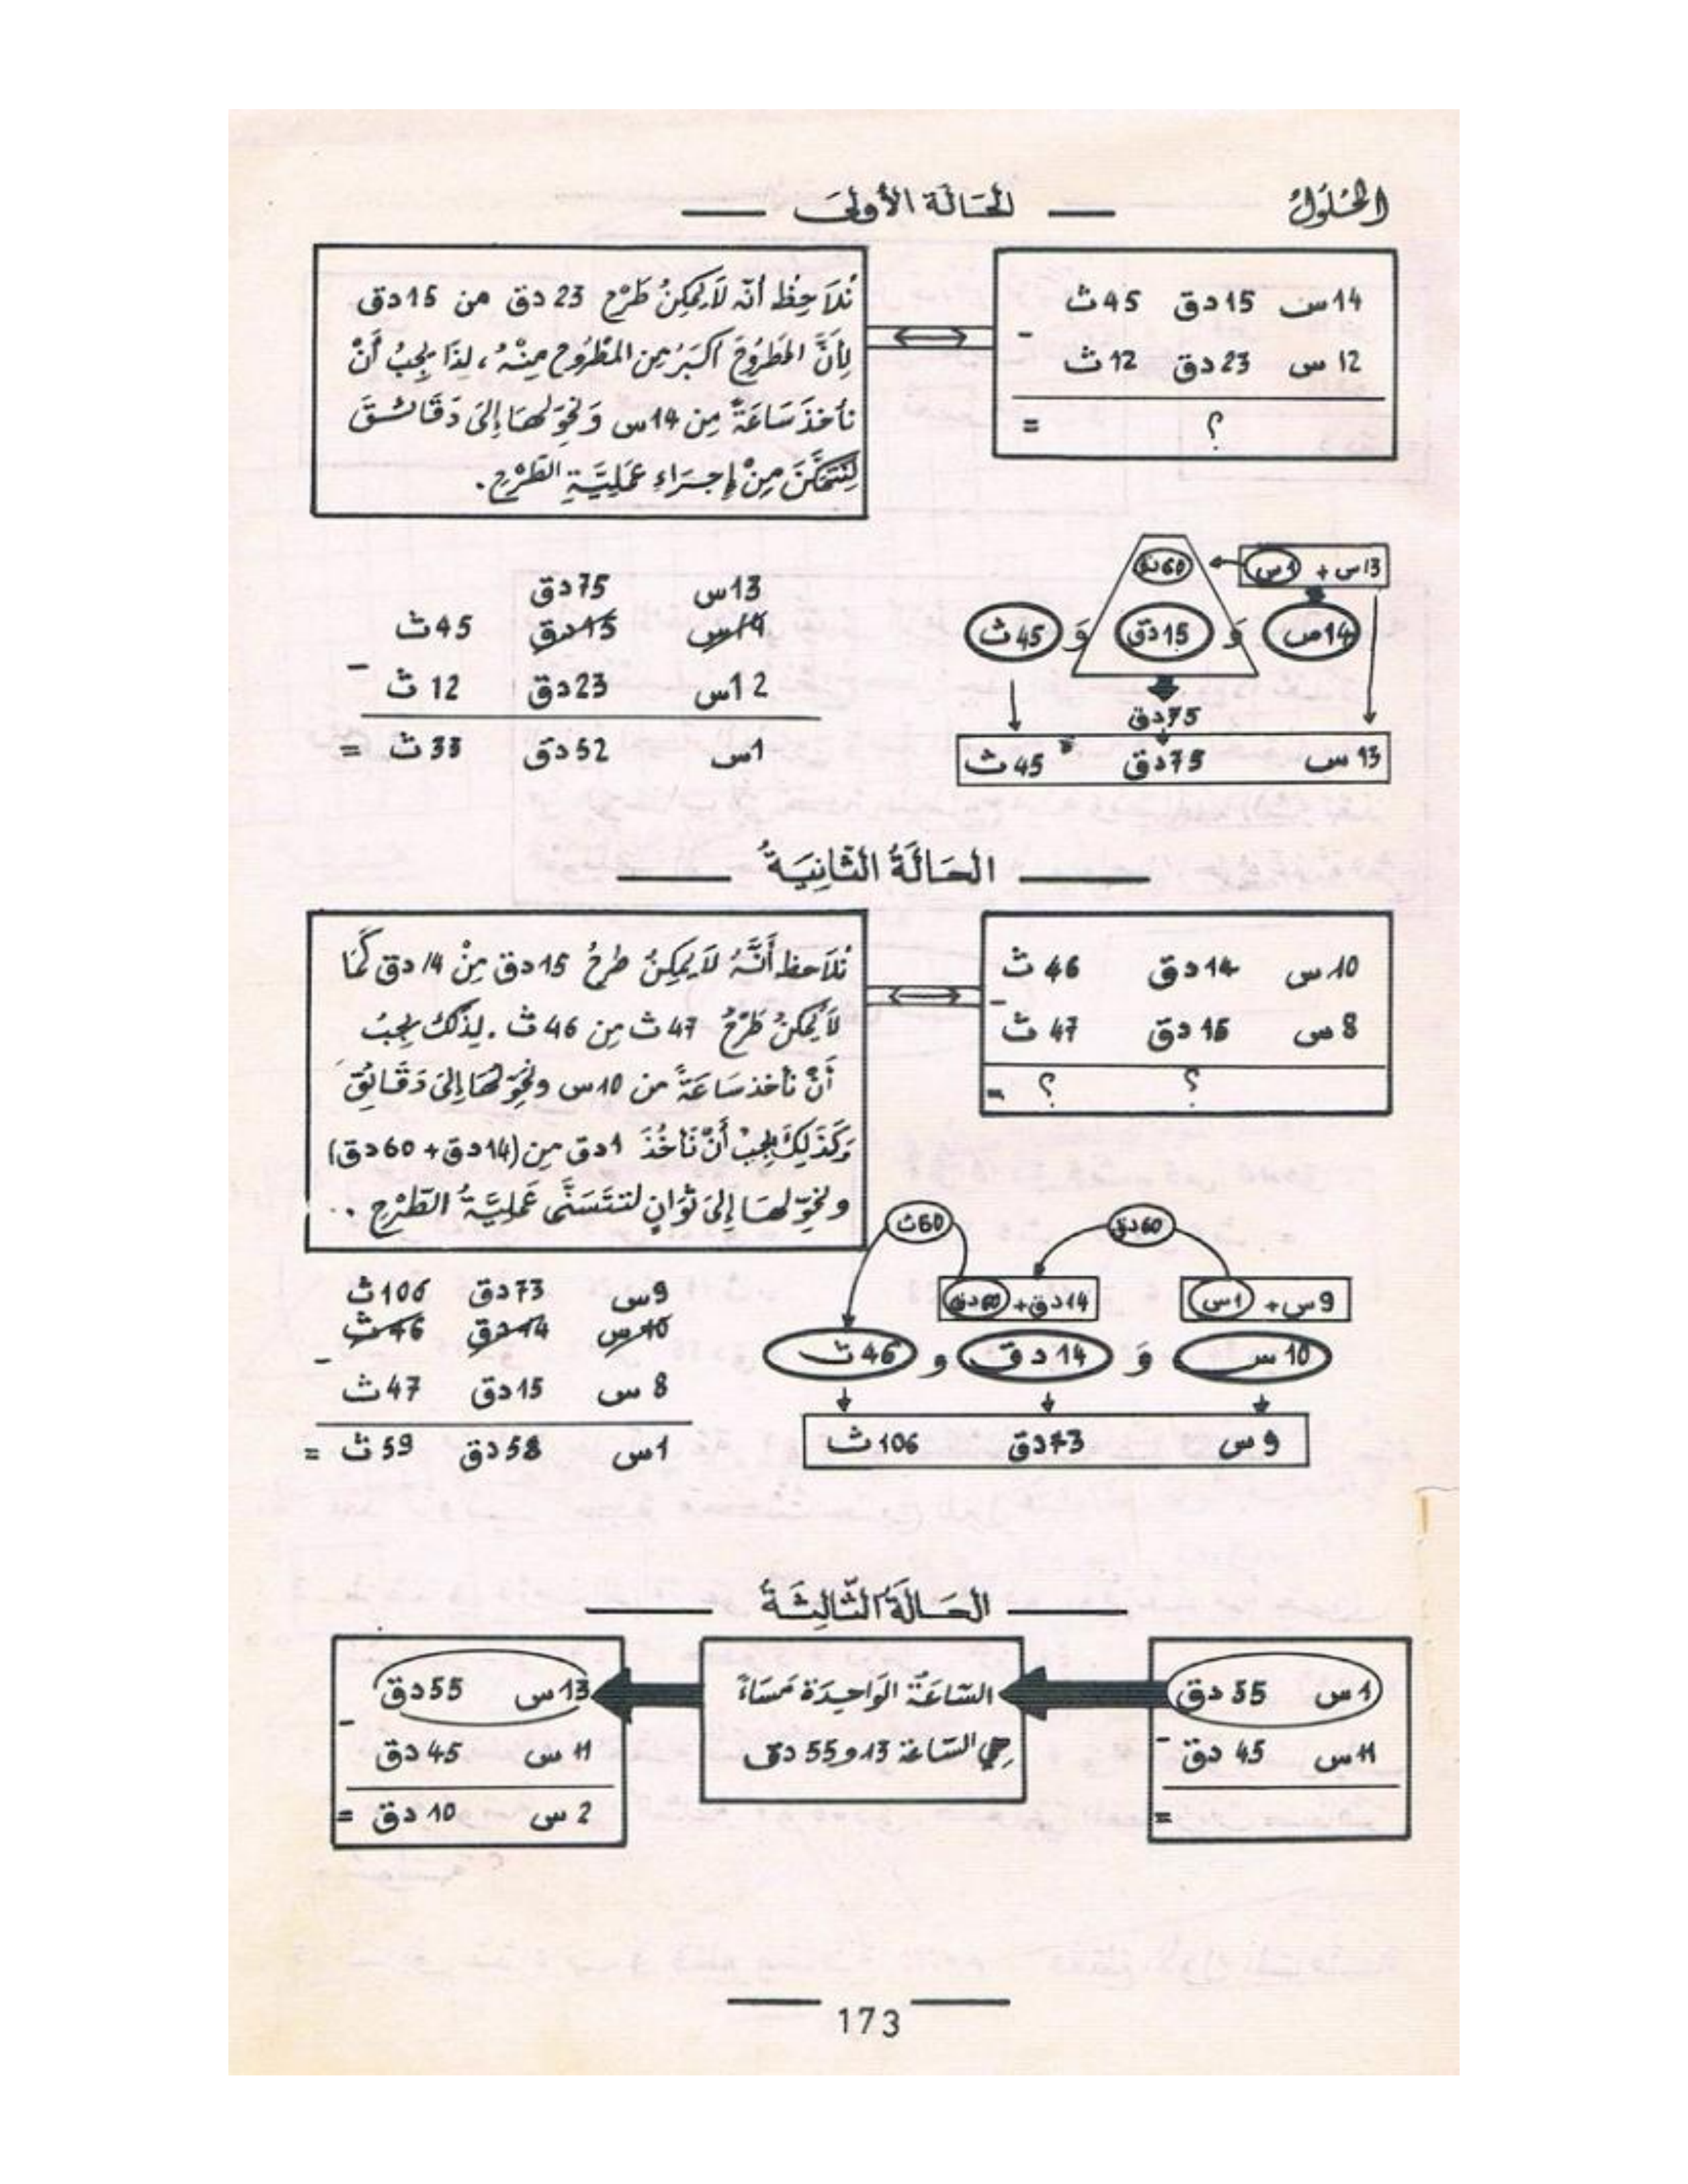 الحُلُولُ
الحَالَة الأُولَى
14س 15دق 45ث
-
12س 23دق 12ث
= ؟
نُلَاحِظ أنّه لَا يُمكِنُ طَرْح 23دق من 15دق
لِأَنَّ المَطرُوحَ أكبَرُ مِن المَطْرُوح مِنْهُ، لِذَا يَجِبُ أَنْ
نَأخذَ سَاعَةً مِن 14س وَنُحَوِّلهَا إلَى دَقَائِقَ
لِنَتَمَكَّنَ مِنْ إجرَاءِ عَمَلِيَّةِ الطَّرْحِ.
13س + 1س
60دق
14س وَ 15دق وَ 45ث
75دق
13س 75دق 45ث
13س 75دق
14س 15دق 45ث
-
12س 23دق 12ث
1س 52دق 33ث =
الحَالَةُ الثَّانِيَةُ
10س 14دق 46ث
-
8س 15دق 47ث
؟ ؟ =
نُلَاحظ أَنَّهُ لَا يُمكِنُ طَرحُ 15دق مِنْ 14دق كَمَا
لَا يُمكنُ طَرْحُ 47ث مِن 46ث. لِذَلكَ يَجِبُ
أَنْ نأخذ سَاعَةً من 10س ونُحَوِّلهَا إلىَ دَقَائِقَ
وَكَذَلِكَ يَجِبُ أَنْ نَأخُذَ 1دق مِن (14دق + 60دق)
ونُحَوِّلهَا إلىَ ثَوَانٍ لتتَسَنَّى عَمَلِيَّةُ الطَّرْحِ ..
60دق 60ث
9س + 1س 14دق + 60دق
10س وَ 14دق و 46ث
9س 73دق 106ث
9س 73دق 106ث
10س 14دق 46ث
-
8س 15دق 47ث
1س 58دق 59ث =
الحَالَةُ الثَّالِثَةُ
1س 55دق
-
11س 45دق
=
السَّاعَةُ الوَاحِدَة مَسَاءً
هِي السَّاعة 13 و 55دق
13س 55دق
-
11س 45دق
2س 10دق =
173